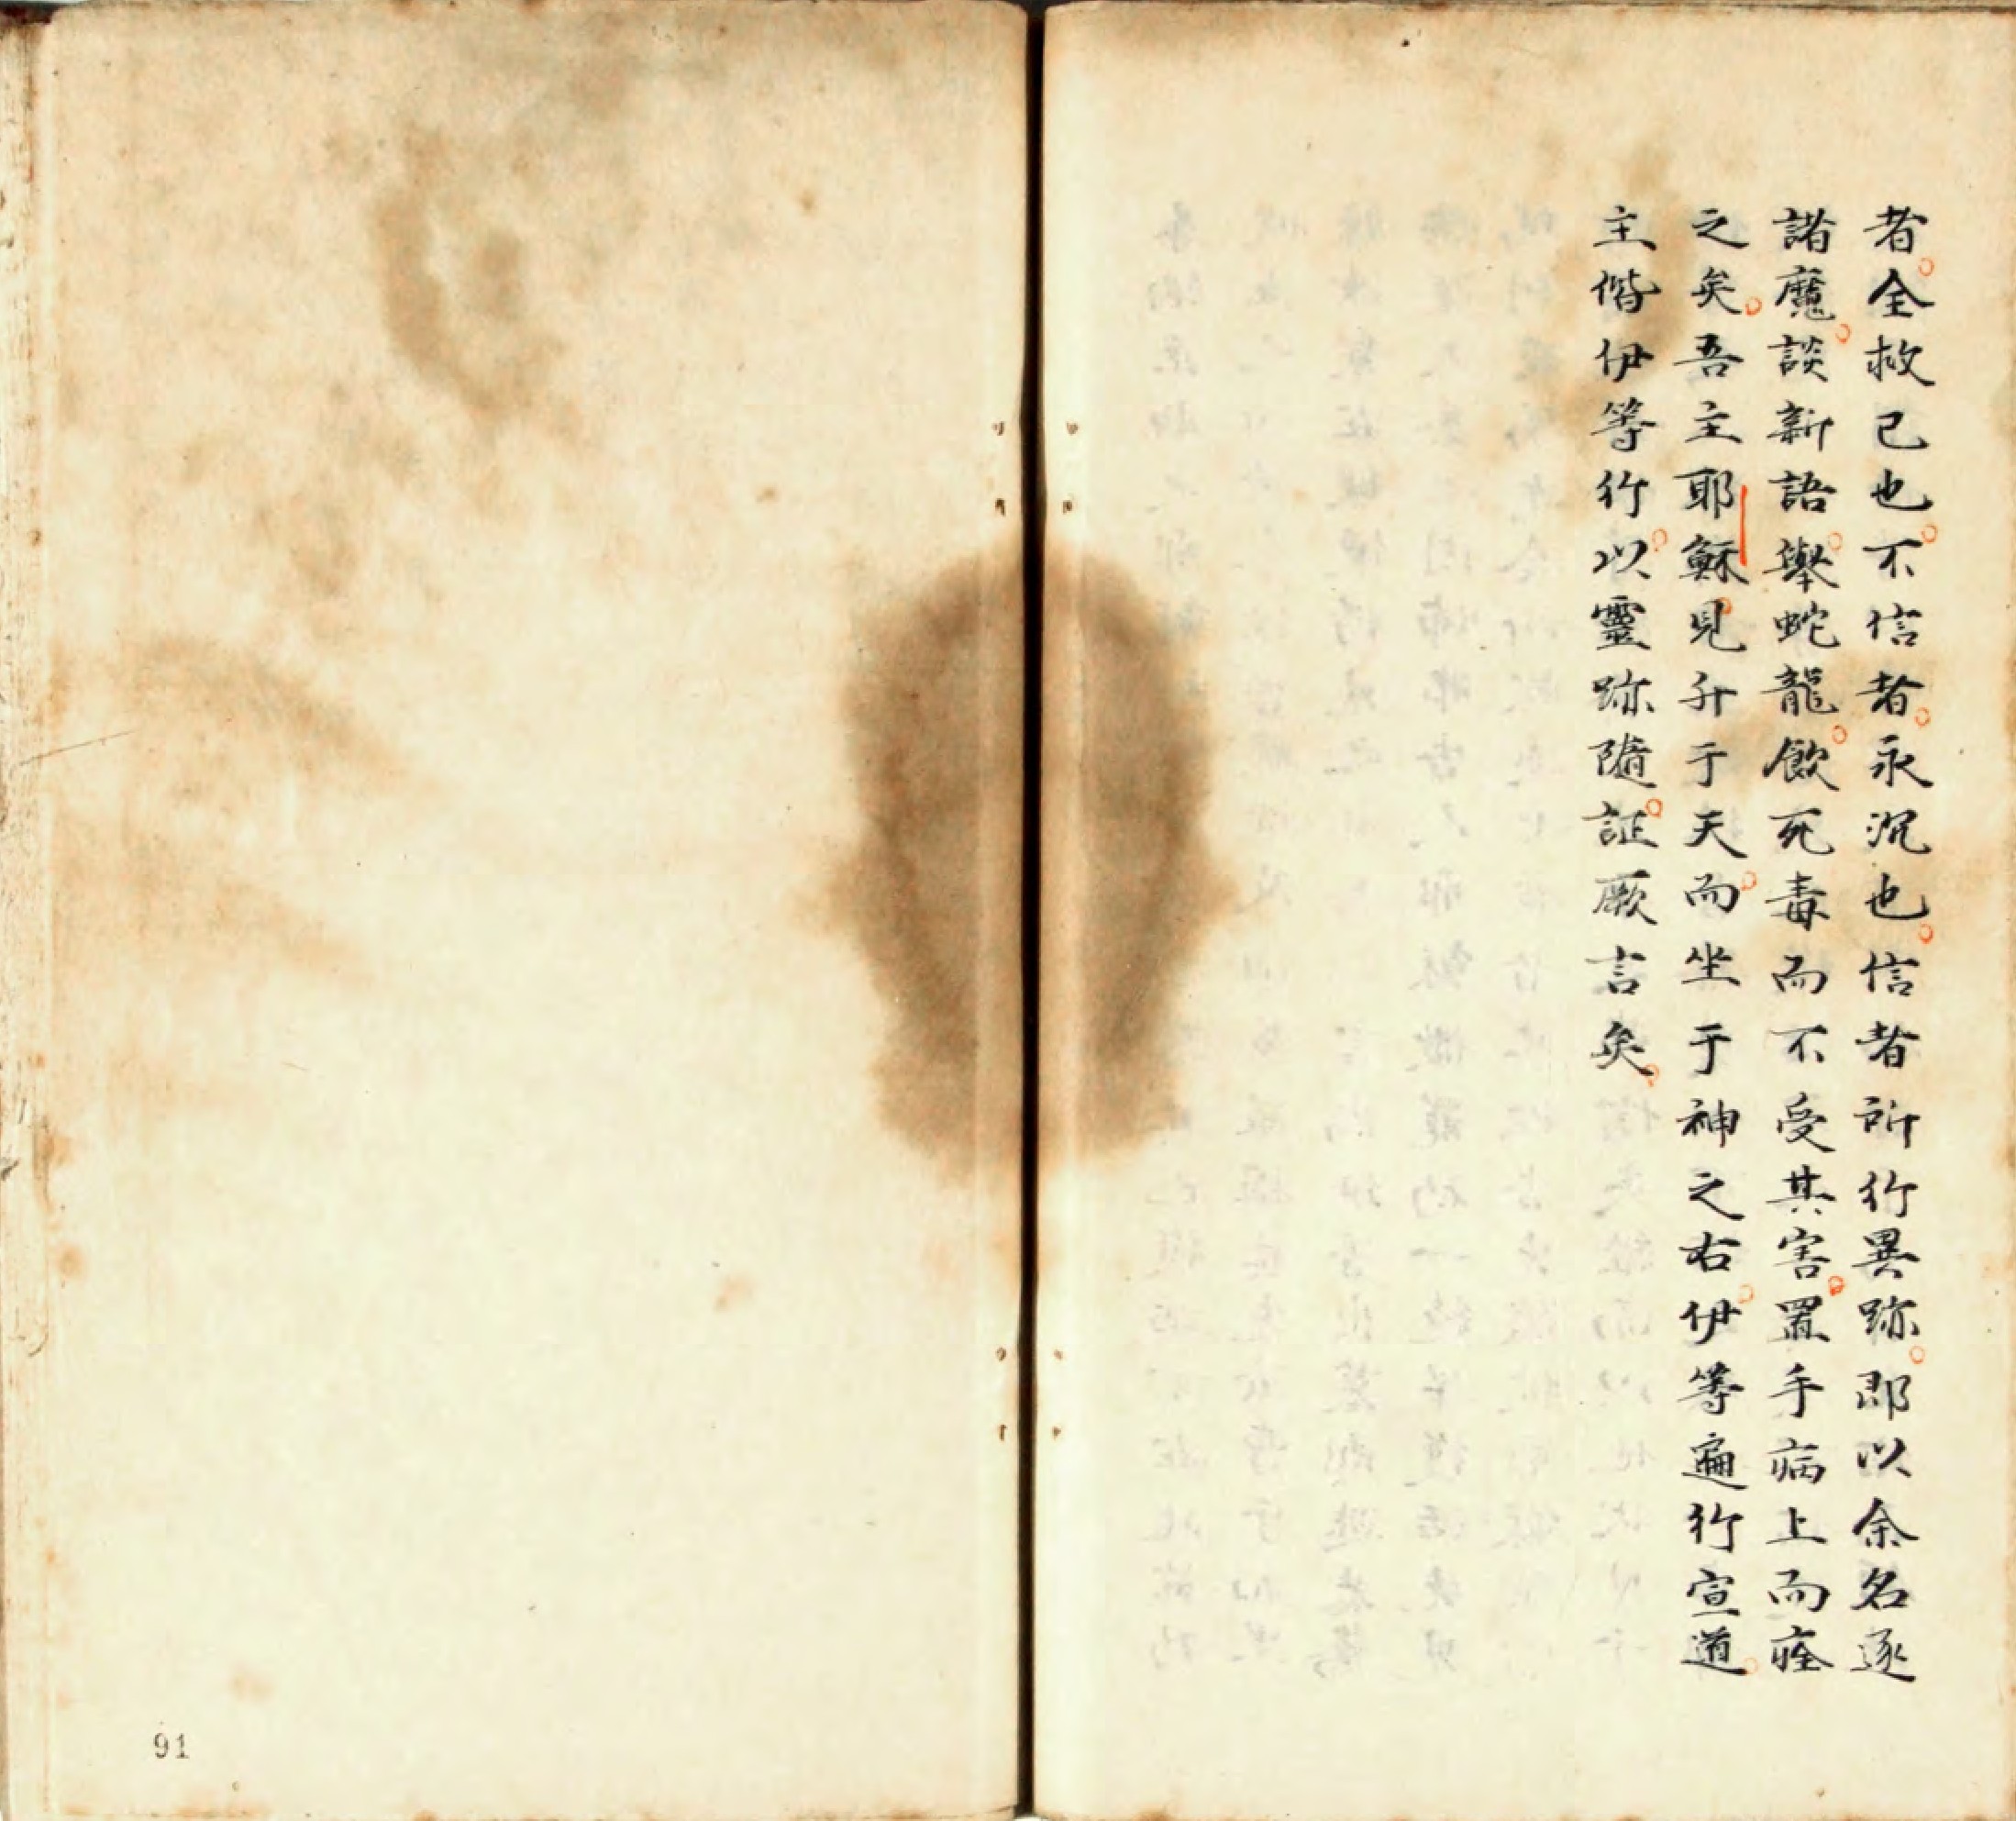 者。全救己也。不信者。永沉也。信者所行異跡。即以余名逐
諸魔。談新語。舉蛇龍。飲死毒而不受其害。置手病上而痊
之矣。吾主耶穌。見升于天。而坐于神之右。伊等遍行宣道。
主偕伊等行。以靈跡隨。証厥言矣。
91